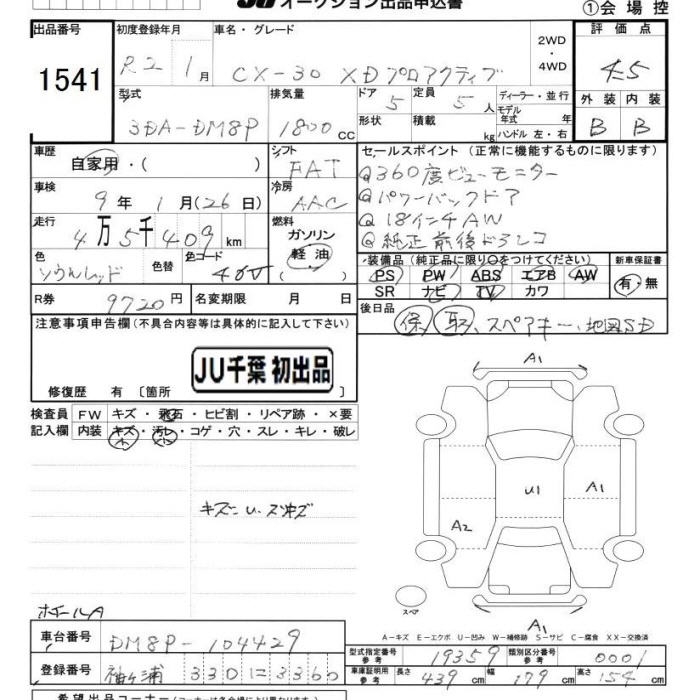 オークション出品申込書
①会場控
出品番号 初度登録年月 車名・グレード 2WD・4WD 評価点
1541 R2 1月 CX-30 XDプロアクティブ 4.5
型式 排気量 ドア 5 定員 5人 ディーラー・並行 外装 内装
3DA-DM8P 1800cc 形状 積載 kg モデル年式 年 ハンドル 左・右 B B
車歴 自家用・( ) シフト FAT セールスポイント(正常に機能するものに限ります)
車検 9年 1月(26日) 冷房 AAC 360度ビューモニター
パワーバックドア
走行 4万5千409km 燃料 ガソリン 軽油 ( ) 18インチAW
純正前後ドラレコ
色 ソウルレッド 色替 色コード 46V 装備品(純正品に限り○をつけてください) 新車保証書
PS PW ABS エアB AW 有・無
SR ナビ TV カワ
R券 9720円 名変期限 月 日 後日品
保 取 、スペアキー、地図SD
注意事項申告欄(不具合内容等は具体的に記入して下さい)
JU千葉 初出品
修復歴 有 〔箇所
検査員記入欄 FW キズ・飛石・ヒビ割・リペア跡・×要
内装 キズ・汚レ・コゲ・穴・スレ・キレ・破レ
A1
U1
A1
A2
スペア
A1
ホイールA
A-キズ E-エクボ U-凹み W-補修跡 S-サビ C-腐食 XX-交換済
車台番号 DM8P-104429 型式指定番号 参考 19359 類別区分番号 参考 0001
登録番号 袖ヶ浦 330 に 3360 車庫証明用 参考 長さ 439cm 幅 179cm 高さ 154cm
希望出品コーナー